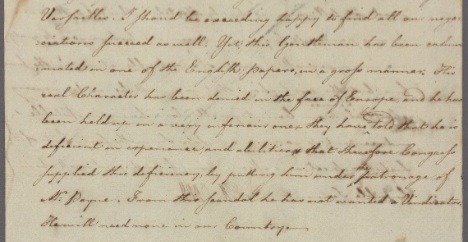 Versailles. I should be exceeding happy to find all our nego-
tiations succeed as well. Yet this Gentleman has been calum-
niated in one of the English Papers, in a gross manner. His
real Character has been denied in the face of Europe, and he has
been held up in a very infamous one, they have told that he is
deficient in experience and abilities, that therefore Congress
supplied this deficiency, by putting him under the patronage of
Mr. Payne. From this scandal he has not wanted a Vindicator
He will need none in our Country.